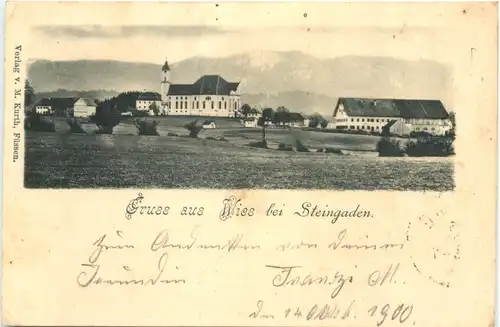 Verlag v. M. Kurth, Füssen.
Gruss aus Wies bei Steingaden.
Zum Andenken von Deiner
Freundin Franzi M.
den 14 Okt. 1900